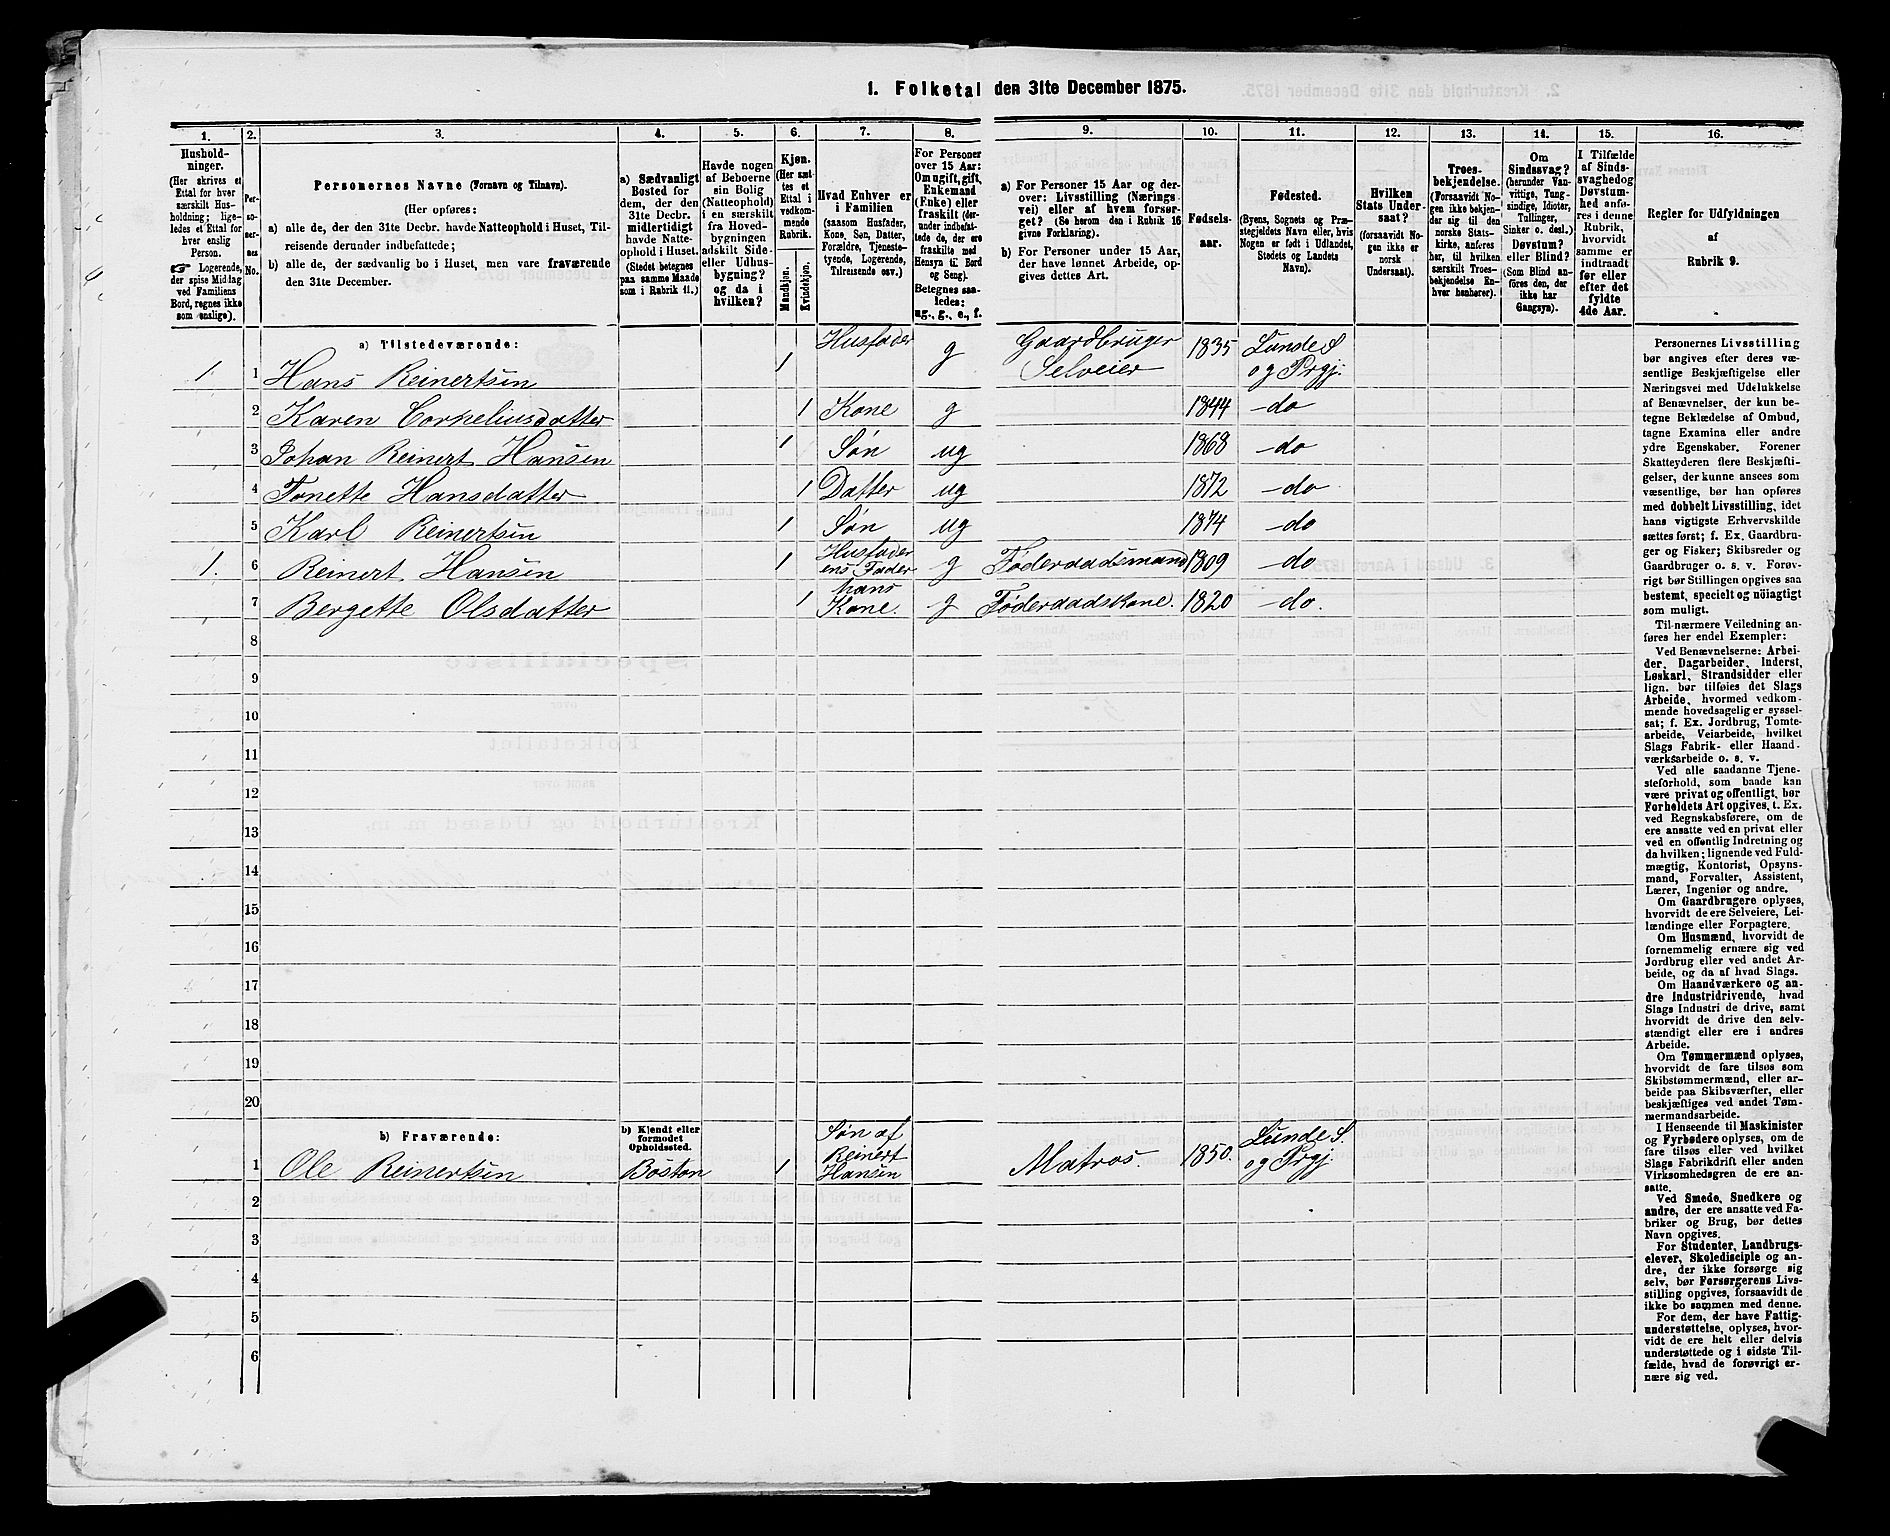 1. Folketal den 31te December 1875.
1.
2.
3.
4.
5.
6.
7.
8.
9.
10.
11.
12.
13.
14.
15.
16.
Hushold-
ninger.
(Her skrives et
Ettal for hver
særskilt Hus-
holdning; lige-
ledes et Ettal for
hver enslig
Person.
☛ Logerende,
der spise Middag
ved Familiens
Bord, regnes ikke
som enslige).
Per-
so-
ner-
nes
No.
Personernes Navne (Fornavn og Tilnavn).
(Her opføres:
a) alle de, der den 31te Decbr. havde Natteophold i Huset, Til-
reisende derunder indbefattede;
b) alle de, der sædvanlig bo i Huset, men vare fraværende
den 31te December.
a) Sædvanligt
Bosted for
dem, der den
31te Decbr.
midlertidigt
havde Natte-
ophold i Huset.
(Stedet betegnes
paa samme Maade
som i Rubrik 11.)
Havde nogen
af Beboerne
sin Bolig
(Natteophold)
i en særskilt
fra Hoved-
bygningen
adskilt Side-
eller Udhus-
bygning?
og da i
hvilken?
Kjøn.
(Her sæt-
tes et
Ettal i
vedkom-
mende
Rubrik.
Mandkjøn.
Kvindekjøn.
Hvad Enhver er
i Familien
(saasom Husfader,
Kone, Søn, Datter,
Forældre, Tjeneste-
tyende, Logerende,
Tilreisende osv.)
For Personer
over 15 Aar:
Om ugift, gift,
Enkemand
(Enke) eller
fraskilt (der-
under indbefat-
tede de, der ere
fraskilte med
Hensyn til Bord
og Seng).
Betegnes saa-
ledes:
ug., g., e., f.
a) For Personer 15 Aar og der-
over: Livsstilling (Nærings-
vei) eller af hvem forsør-
get? (Se herom den i Rubrik 16
givne Forklaring).
b) For Personer under 15 Aar,
der have lønnet Arbeide, op-
gives dettes Art.
Fødsels-
aar.
Fødested.
(Byens, Sognets og Præ-
stegjeldets Navn eller, hvis
Nogen er født i Udlandet,
Stedets og Landets
Navn).
Hvilken
Stats Under-
saat?
(forsaavidt No-
gen ikke er
norsk
Undersaat).
Troes-
bekjendelse.
(Forsaavidt No-
gen ikke bekjen-
der sig til den
norske Stats-
kirke, anføres
her, til hvilken
særskilt Troes-
bekjendelse En-
hver henhører).
Om
Sindssvag?
(herunder Van-
vittige, Tung-
sindige, Idioter,
Tullinger,
Sinker o. desl.)
Døvstum?
eller Blind?
(Som Blind an-
føres den, der
ikke har
Gangsyn).
I Tilfælde
af Sinds-
svaghed og
Døvstum-
hed anfø-
res i denne
Rubrik,
hvorvidt
samme er
indtraadt
før eller
efter det
fyldte
4de Aar.
Regler for Udfyldningen
af
Rubrik 9.
a) Tilstedeværende:
1 1 Hans Reinertsen 1 Husfader g Gaardbruger Selveier 1835 Lunde S og Prgj.
2 Karen Corneliusdatter 1 Kone g 1844 -do
3 Johan Reinert Hansen 1 Søn ug 1868 -do
4 Tonette Hansdatter 1 Datter ug 1872 -do
5 Karl Reinertsen 1 Søn ug 1874 -do
1. 6 Reinert Hansen 1 Husfaderens Fader g Føderaadsmand 1809 -do
7 Bergette Olsdatter 1 hans Kone. g Føderaadskone. 1820 -do.
8
9
10
11
12
13
14
15
16
17
18
19
20
b) Fraværende:
b) Kjendt eller
formodet
Opholdssted.
1 Ole Reinertsen Boston 1 Søn af Reinert Hansen Matros. 1850. Lunde S. og Prgj.
2
3
4
5
6
Personernes Livsstilling
bør angives efter deres væ-
sentlige Beskjæftigelse eller
Næringsvei med Udelukkelse
af Benævnelser, der kun be-
tegne Beklædelse af Ombud,
tagne Examina eller andre
ydre Egenskaber. Forener
Skatteyderen flere Beskjæfti-
gelser, der kunne ansees som
væsentlige, bør han opføres
med dobbelt Livsstilling, idet
hans vigtigste Erhvervskilde
sættes først; f. Ex. Gaardbru-
ger og Fisker; Skibsreder og
Gaardbruger o. s. v. Forøv-
rigt bør Stillingen opgives saa
bestemt, specielt og nöiagtigt
som muligt.
Til nærmere Veiledning an-
føres her endel Exempler:
Ved Benævnelserne: Arbei-
der, Dagarbeider, Inderst,
Løskarl, Strandsidder eller
lign. bør tilføies det Slags
Arbeide, hvormed vedkom-
mende hovedsagelig er syssel-
sat; f. Ex. Jordbrug, Tomte-
arbeide, Veiarbeide, hvilket
Slags Fabrik- eller Haand-
værksarbeide o. s. v.
Ved alle saadanne Tjene-
steforhold, som baade kan
være privat og offentligt, bør
Forholdets Art opgives, t. Ex.
ved Regnskabsførere, om de
ere ansatte ved en privat eller
ved en offentlig Indretning og
da hvilken; lignende ved Fuld-
mægtig, Kontorist, Opsyns-
mand, Forvalter, Assistent,
Lærer, Ingeniør og andre.
Om Gaardbrugere oplyses,
hvorvidt de ere Selveiere, Lei-
lændinge eller Forpagtere.
Om Husmænd, hvorvidt de
fornemmelig ernære sig ved
Jordbrug eller ved andet Ar-
beide, og da af hvad Slags.
Om Haandværkere og an-
dre Industridrivende, hvad
Slags Industri de drive, samt
hvorvidt de drive den selv-
stændigt eller ere i andres
Arbeide.
Om Tømmermænd oplyses,
hvorvidt de fare tilsøs som
Skibstømmermænd, eller ar-
beide paa Skibsværfter, eller
beskjæftiges ved andet Tøm-
mermandsarbeide.
I Henseende til Maskinister
og Fyrbødere oplyses, om de
fare tilsøs eller ved hvilket
Slags Fabrikdrift eller anden
Virksomhedsgren de ere an-
satte.
Ved Smede, Snedkere og
andre, der ere ansatte ved Fa-
briker og Brug, bør dettes
Navn opgives.
For Studenter, Landbrugs-
elever, Skoledisciple og an-
dre, der ikke forsørge sig
selv, bør Forsørgerens Livs-
stilling opgives, forsaavidt de
ikke bo sammen med denne.
For dem, der have Fattig-
understøttelse, oplyses, hvor-
vidt de ere helt eller delvis
understøttede og i sidste Til-
fælde, hvad de forøvrigt er-
nære sig ved.